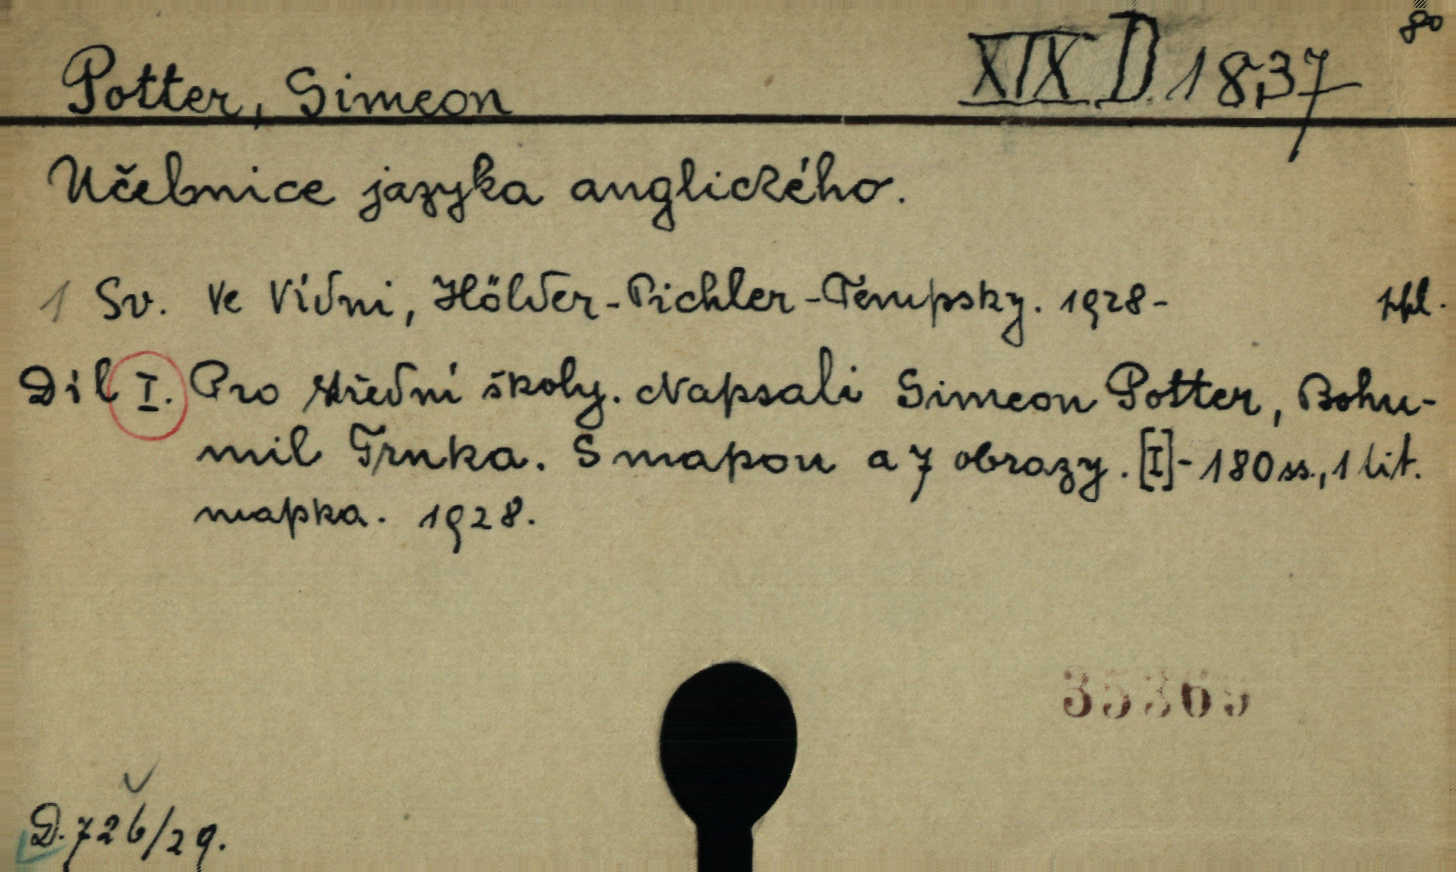 80
Potter, Simeon XIX D 1837
Učebnice jazyka anglického.
1 Sv. Ve Vídni, Hölder-Pichler-Tempsky. 1928- ppl.
Díl I. Pro střední školy. Napsali Simeon Potter, Bohu-
mil Trnka. S mapou a 7 obrazy. [I]-180 ss., 1 lit.
mapka. 1928.
35365
D. 726/29.